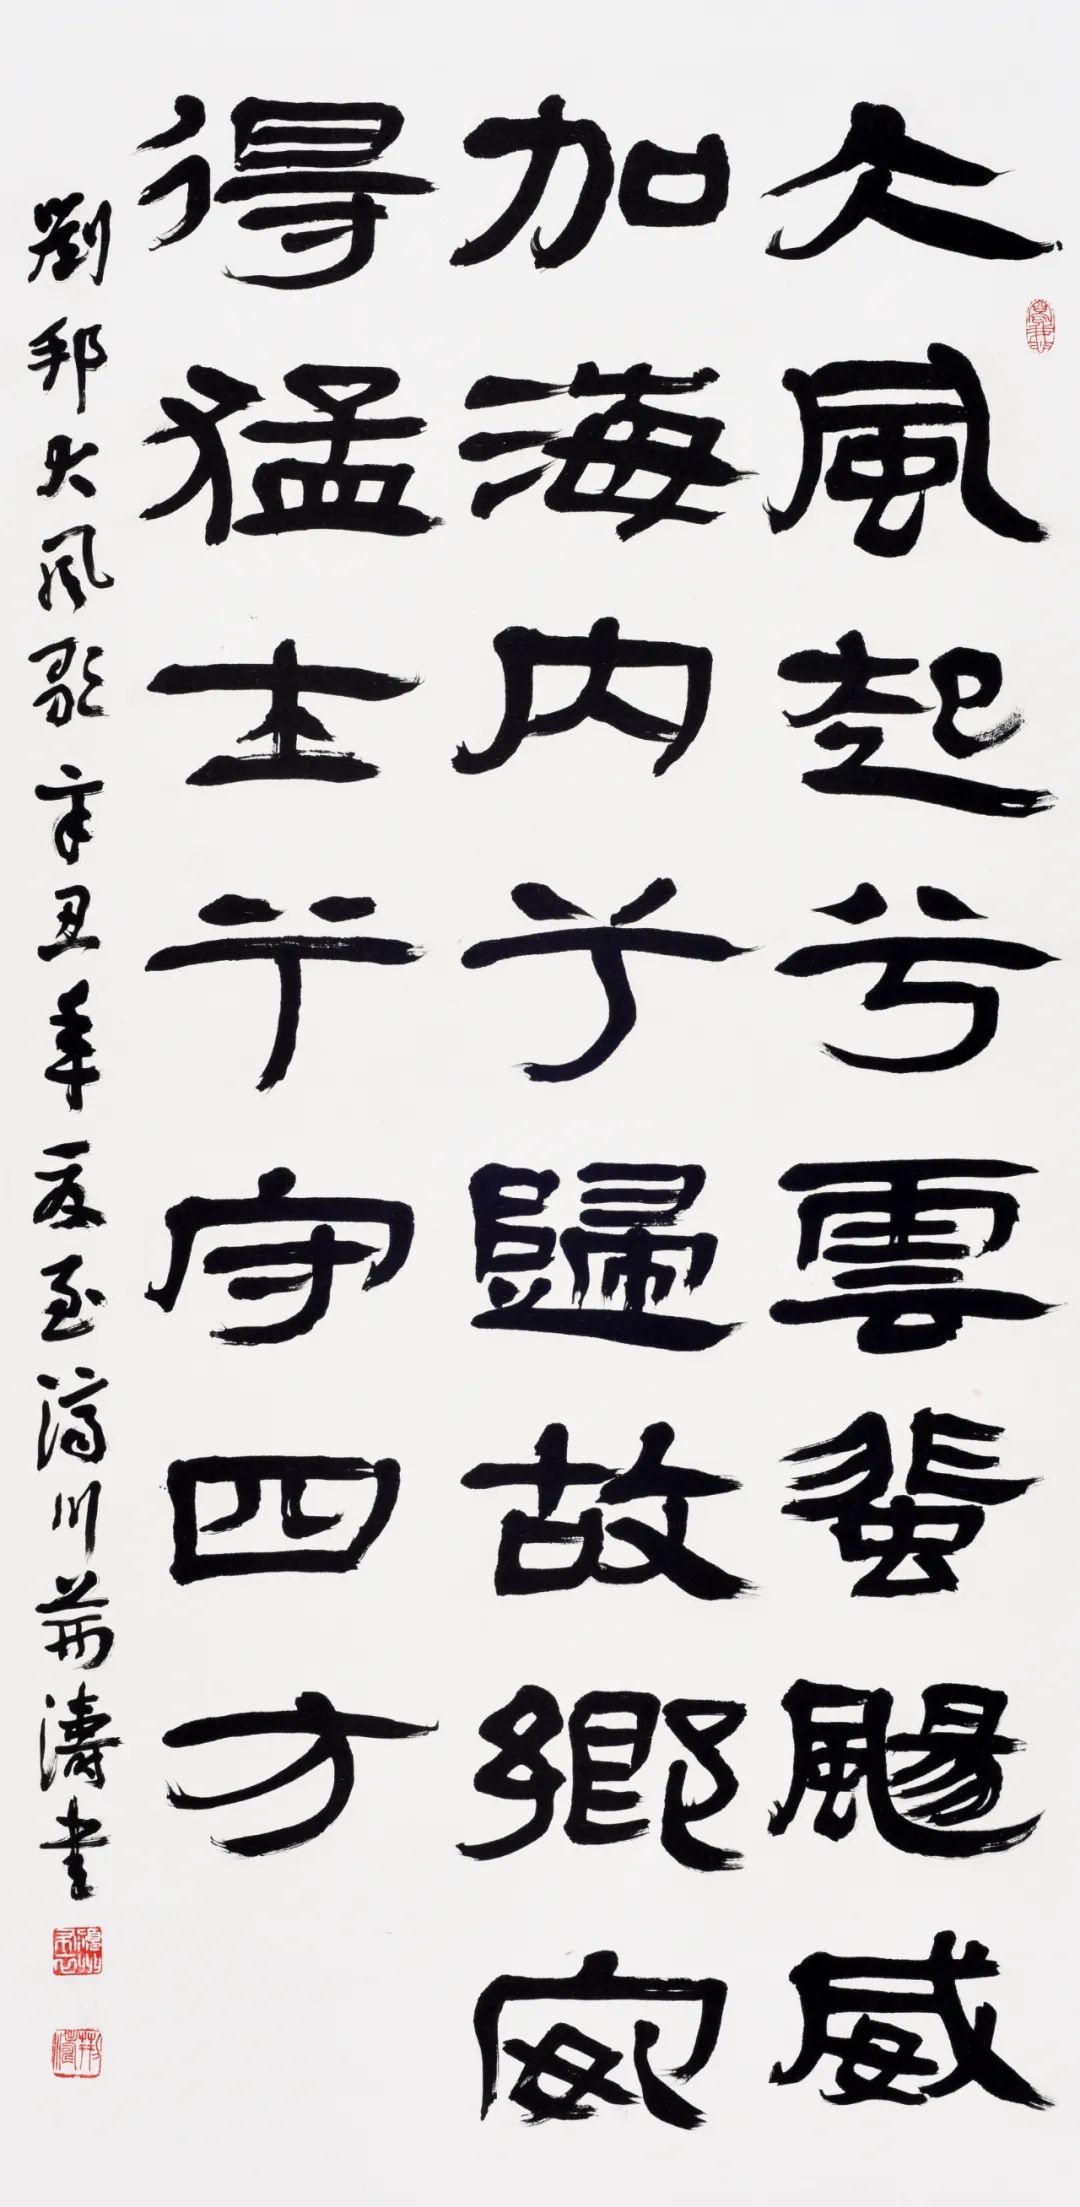 大風起兮雲蜚颺威
加海内兮歸故鄉安
得猛士兮守四方
劉邦大風歌辛丑年夏至濟川荊濤書